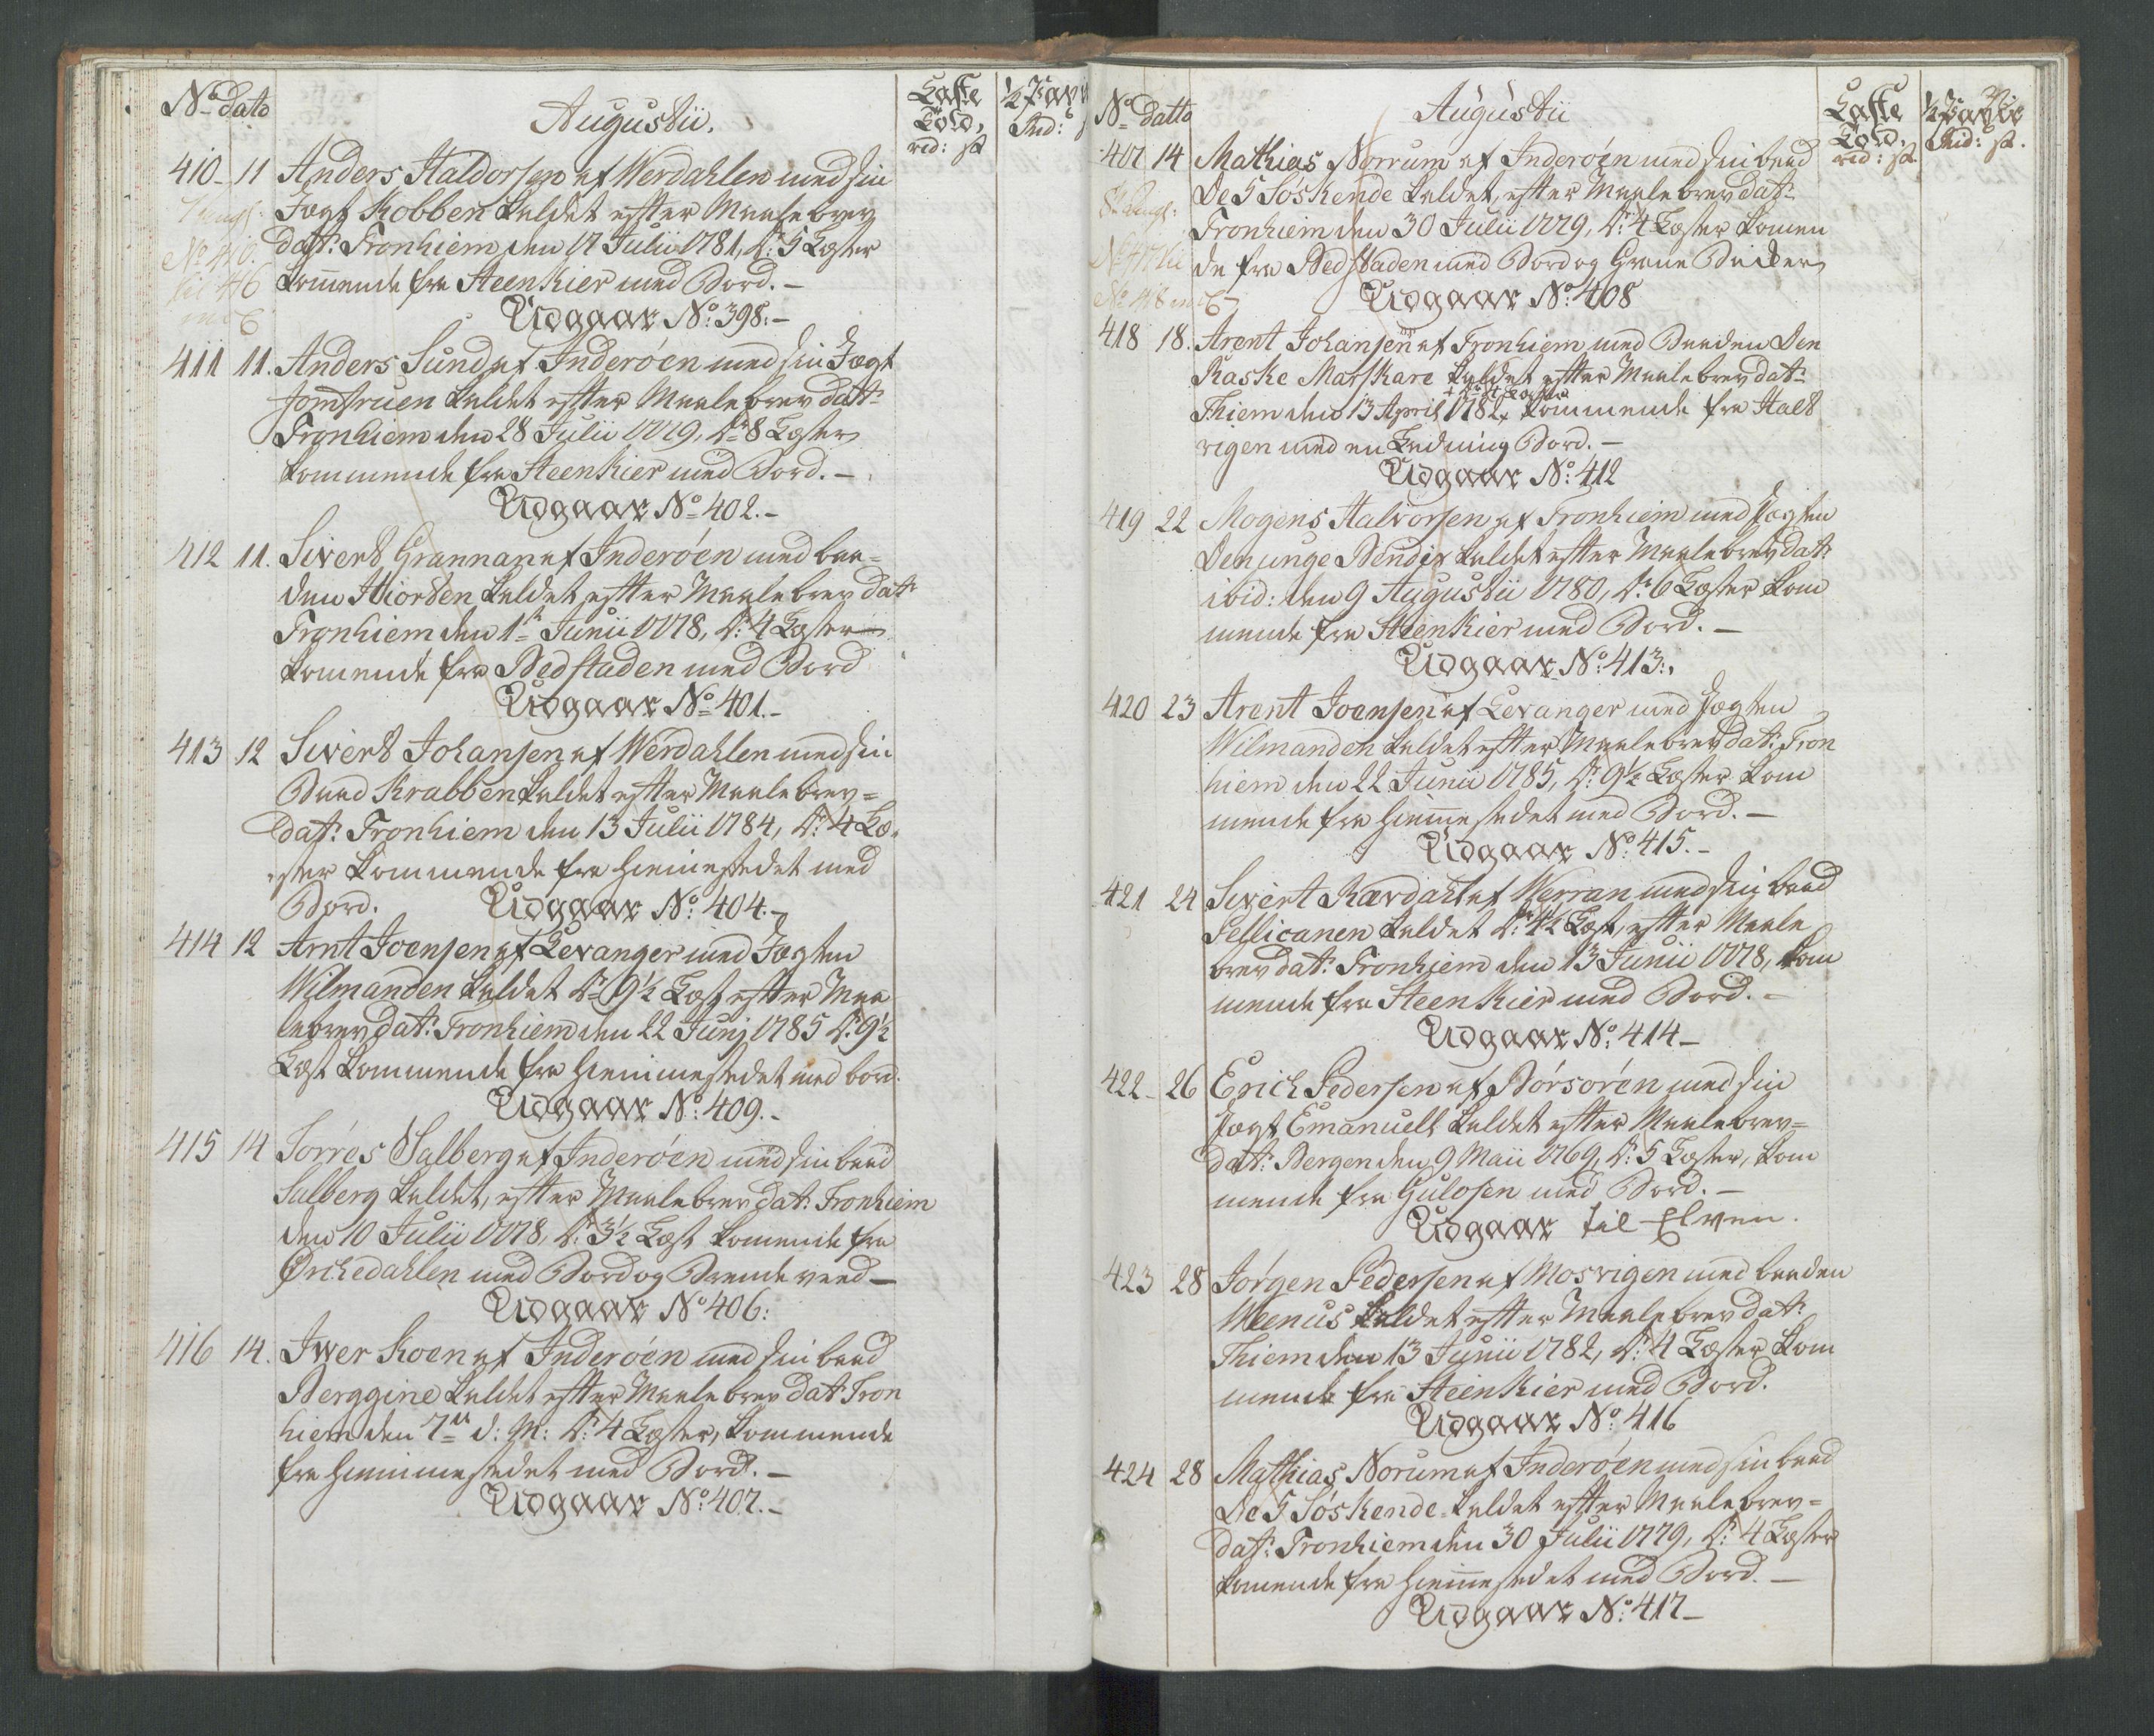 No dato
Augustii.
Laste
Told,
rd: s
½ Pav
Rd:
410 11 Anders Haldorsen af Werdahlen med sin
Jægt Kobben kaldet efter Maalebrev
dat: Tronhiem den 17 Julii 1781, Dr: 5 Læster
kom̄ende fra Steenkier med Bord. –
No 410.
til 416
Udgaar No: 398. –
411 11. Anders Sund af Inderöen med sin Jægt
Jomfruen kaldet efter Maalebrev datt:
Tronhiem den 28 Julii 1779, Dr: 8 Læster
kommende fra Steenkier med Bord. –
Udgaar No 402. –
412 11. Sivert Grannan af Inderöen med baa=
den Hiorten kaldet efter Maalebrev dat:
Tronhiem den 1te Junii 1778, Dr: 4 Læster
komende fra Bedstaden med Bord
Udgaar No 401. –
413 12 Sivert Johansen af Werdahlen med sin
Baad Krabben kaldet efter Maalebrev=
dat: Tronhiem den 13 Julii 1784, Dr: 4 Læ=
ster kommende fra Hiemmestedet med
Bord. Udgaar No: 404. –
414 12 Arnt Joensen af Levanger med Jægten
Wilmanden kaldet Dr: 9½ Læst efter Maa
lebrev dat: Tronhiem den 22 Junj 1785 Dr: 9½
Læst kommende fra Hiemmestedet med bord.
Udgaar No: 409. –
415 14 Torres Salberg af Inderöen med sin baad
Salberg kaldet, efter Maalebrev dat: Tronhiem
den 10 Julii 1778, Dr: 3½ Læst komende fra
Örchedahlen med Bord og Brende veed –
Udgaar No 406:
416 14. Iwer Koen af Inderöen med sin baad
Berggine kaldet efter Maalebrev dat: Tron
hiem den 7de d: M: Dr: 4 Læster, kommende
fra Hiemmestedet med Bord. –
Udgaar No: 407. –
No datto
Augustii
Laste
Told.
rd: s.
½ Pavie
Rd: s.
417 14 Mathias Norrum af Inderöen med sin baad
De 5 Söskende kaldet, efter Maalebrev dat:
Tronhiem den 30 Julii 1779, Dr: 4 Læster komen
de fra Bedstaden med Bord og Grane Beiter
No 417 til
No 418
Udgaar No: 408
418 18. Arent Johansen af Tronhiem med Baaden Den
Raske Matskare kaldet efter Maalebrev dat:
Thiem den 13 April 1782, kommende fra Halt
vigen med en Ladning Bord. –
Udgaar No: 412
419 22 Mogens Halvorsen af Tronhiem med Jægten
Den unge Bendix kaldet efter Maalebrev dat:
ibid: den 9 Augustii 1780, Dr: 6 Læster kom
mende fra Steenkier med Bord. –
Udgaar No: 413.
420 23 Arent Joensen af Levanger med Jægten
Wilmanden kaldet efter Maalebrev dat: Tron
hiem den 22 Junii 1785, Dr: 9½ Læster kom
mende fra Hiem̄estedet med Bord. –
Udgaar No: 415. –
421 24 Sivert Rærdahl af Werran med sin baad
Pellicanen kaldet Dr: 4½ Læst, efter Maale
brev dat: Tronhiem den 13 Junii 1778, kom
mende fra Steenkier med Bord. –
Udgaar No: 414 –
422 26 Erich Pedersen af Börsören med sin
Jægt Emanuell kaldet efter Maalebrev=
dat: Bergen den 9 Maii 1769, Dr: 5 Læster, kom
mende fra Gulosen med Bord. –
Udgaar til Elven.
423 28 Jörgen Pedersen af Mosvigen med baaden
Weenus kaldet efter Maalebrev dat:
Thiem den 13 Junii 1782, Dr: 4 Læster kom
mende fra Steenkier med Bord.
Udgaar No: 416
424 28 Mathias Norum af Inderöen med sin baad
De 5 Söskende kaldet efter Maalebrev=
dat: Tronhiem den 30 Julii 1779, Dr: 4 Læster
komende fra Hiem̄estedet med Bord. –
Udgaar No: 417 –